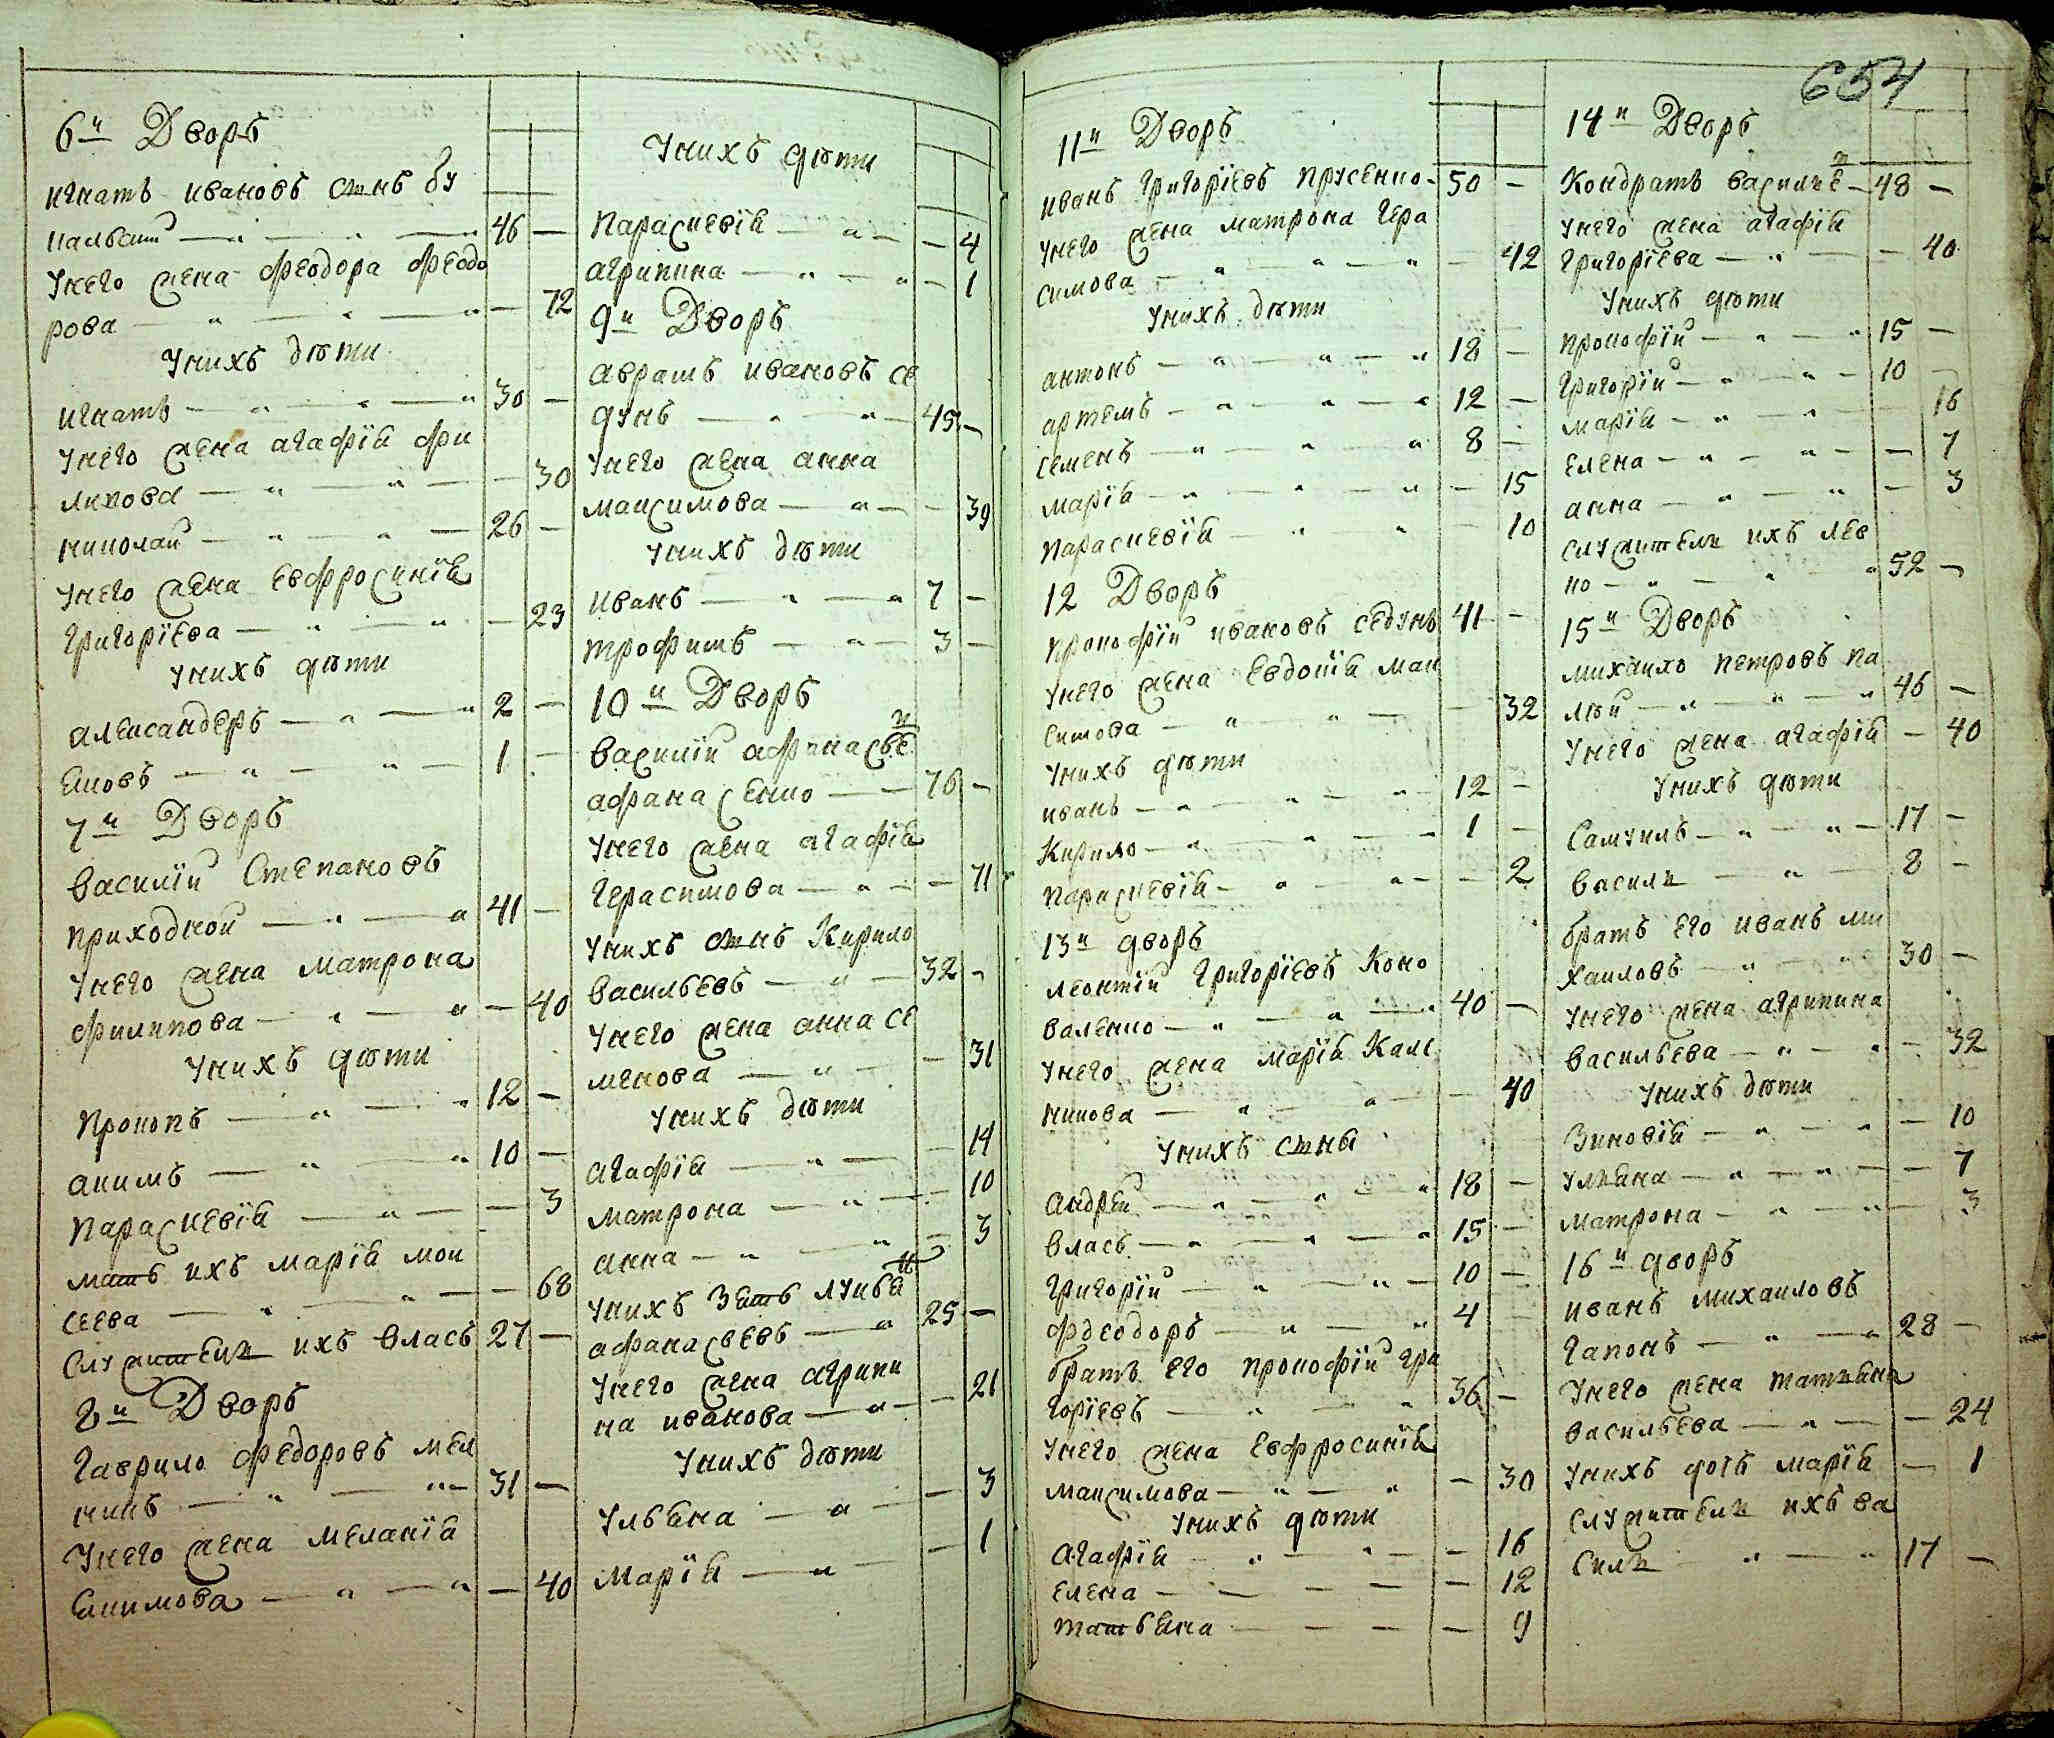 6й Дворъ
игнатъ ивановъ снъ бу
калъскій 46
унего жена феодора феодо
рова 72
унихъ дѣти
игнатъ 30
унего жена агафія фи
липова 30
николай 26
унего жена евфросинія
григоріева 23
унихъ дѣти
александеръ 2
яковъ 1
7й Дворъ
василій степановъ
приходкой 41
унего жена матрона
филипова 40
унихъ дѣти
прокопъ 12
акимъ 10
параскевія 3
мать ихъ марія мои
сеева 68
служитель ихъ власъ 27
8й Дворъ
гаврило федоровъ мел
никъ 31
унего жена меланія
якимова 40
унихъ дѣти
параскевія 4
агрипина 1
9й Дворъ
аврамъ ивановъ се
дунъ 45
унего жена анна
максимова 39
унихъ дѣти
иванъ 7
трофимъ 3
10й Дворъ
василій афанасье
афанасенко 76
унего жена агафія
герасимова 71
унихъ снъ кирило
васильевъ 32
унего жена анна се
менова 31
унихъ дѣти
агафія 14
матрона 10
анна 3
унихъ зять
афанасьевъ 25
унего жена агрипи
на иванова 21
унихъ дѣти
ульяна 3
марія 1
654
11й Дворъ
иванъ григоріевъ прусенко 50
унего жена матрона гера
симова 42
унихъ дѣти
антонъ 18
артемъ 12
семенъ 8
марія 15
параскевія 10
12 Дворъ
прокофій ивановъ седунъ 41
унего жена евдокія мак
симова 32
унихъ дѣти
иванъ 12
кирило 1
параскевія 2
13й дворъ
леонтій григоріевъ коно
валенко 40
унего жена марія кали
никова 40
унихъ сны
андрей 18
власъ 15
григорій 10
фдеодоръ 4
братъ его прокофій гри
горіевъ 36
унего жена евфросинія
максимова 30
унихъ дѣти
агафія 16
елена 12
татьяна 9
14й Дворъ
кондратъ василіе 48
унего жена агафія
григоріева 40
унихъ дѣти
прокофій 15
григорій 10
марія 16
елена 7
анна 3
служитель ихъ лев
ко 52
15й Дворъ
михаило петровъ па
лѣй 46
унего жена агафія 40
унихъ дѣти
самуилъ 17
василь 8
братъ его иванъ ми
хаиловъ 30
унего жена агрипина
васильева 32
унихъ дѣти
зиновія 10
ульяна 7
матрона 3
16й дворъ
иванъ михаиловъ
гапонъ 28
унего жена татьяна
васильева 24
унихъ дочъ марія 1
служитель ихъ ва
силь 17